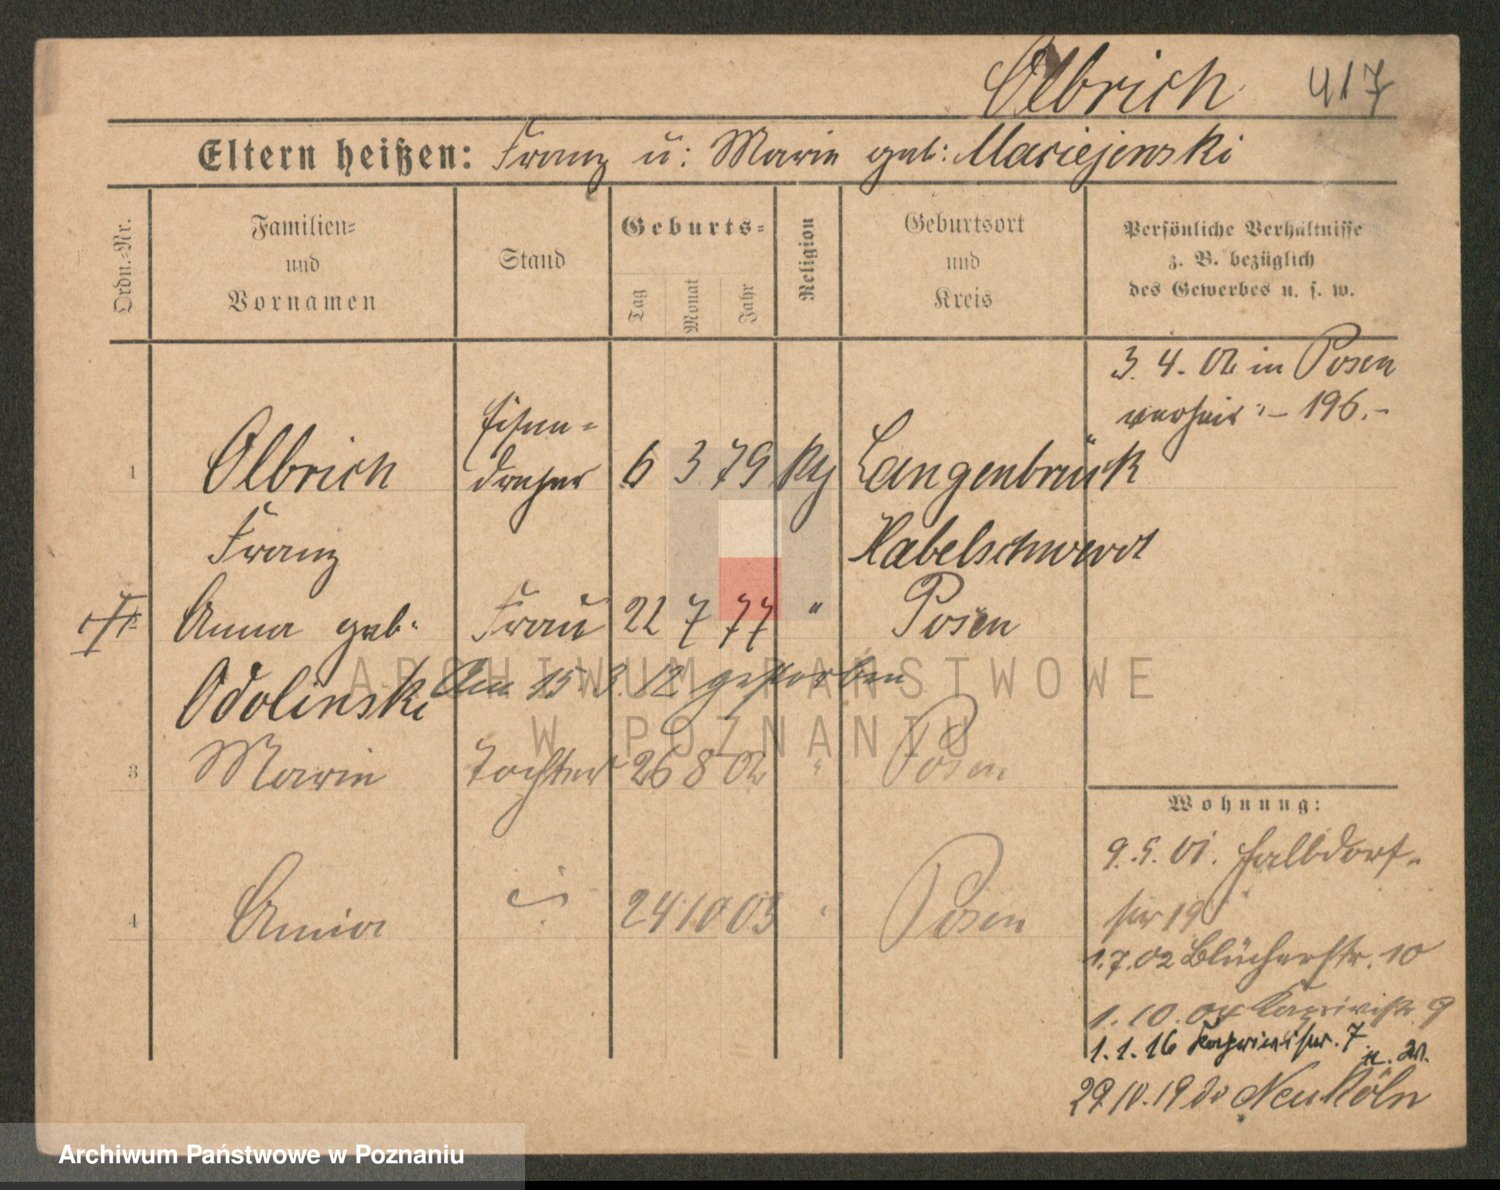 Olbrich 417
Eltern heißen: Franz u: Marie geb: Maciejewski
Ordn.-Nr.
Familien-
und
Vornamen
Stand
Geburts-
Tag
Monat
Jahr
Religion
Geburtsort
und
Kreis
Persönliche Verhältnisse
z. B. bezüglich
des Gewerbes u. s. w.
3. 4. 01 in Posen
verheir: – 196. –
1 Olbrich Eisen-
dreher 6 3 79 Langenbrück
Franz Habelschwerdt
Anna geb. Frau 22 7 77 " Posen
Odolinski Am 15 3. 12 gestorben
3 Marie Tochter 26 8 02 " Posen
4 Anna 24 10 03 " Posen
Wohnung:
9. 5. 01.
str 19
1.7.02 Blücherstr. 10
1.10.04 Kaprivistr. 9
1.1.16 Kaprivistr. 7
29.10.19 Neukölln
ARCHIWUM PAŃSTWOWE
W POZNANIU
Archiwum Państwowe w Poznaniu